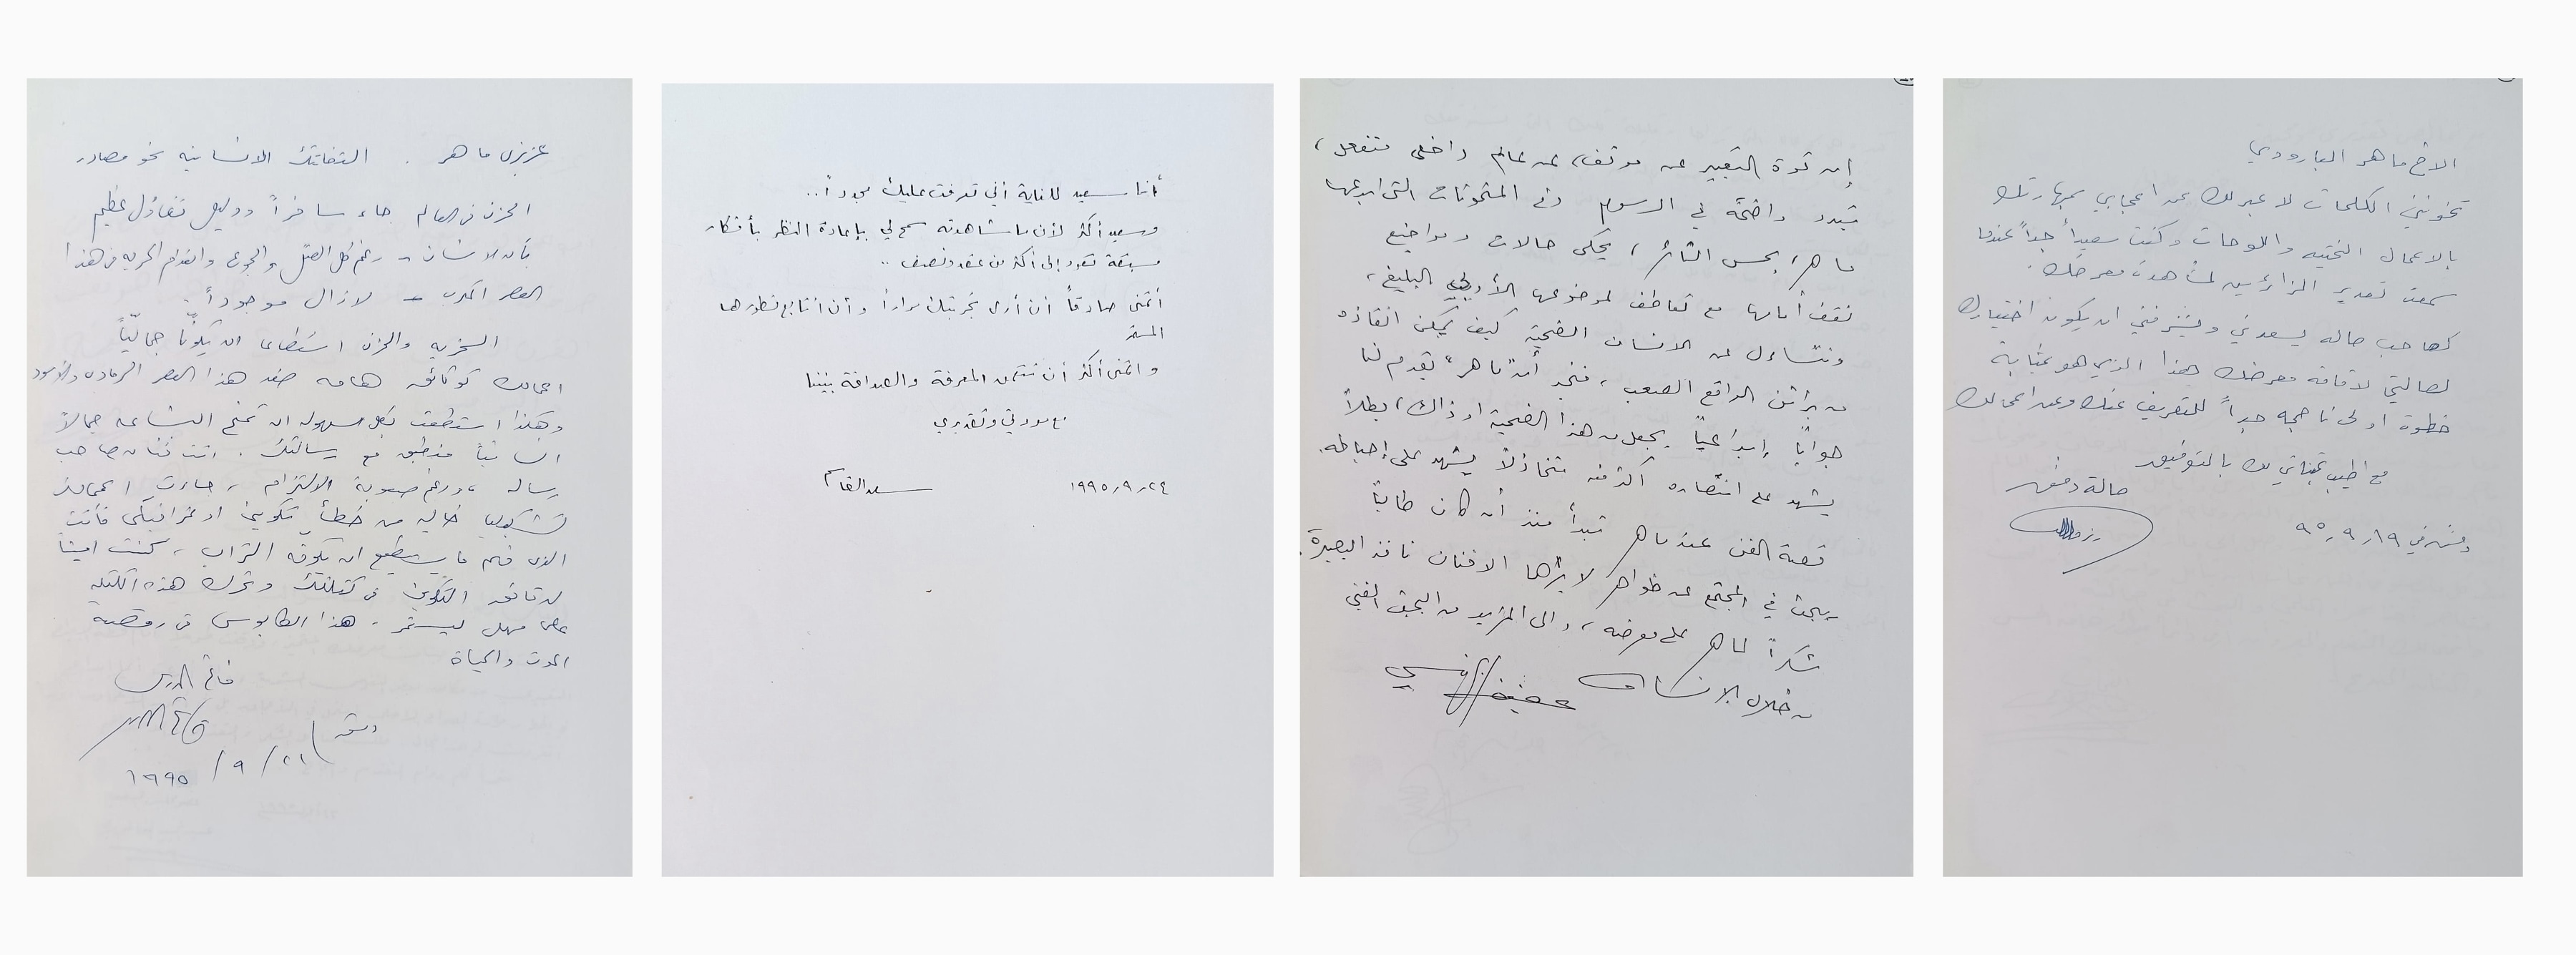 عزيزي ماهر . التفاتتك الانسانيه نحو مصادر
الحزن في العالم جاء سافراً ودليل تفاؤل عظيم
بأن الانسان - رغم كل القتل والجوع وانعدام الحريه في هذا
العصر - لازال موجوداً .
السخريه والحزن استطاعا ان يكونا جماليّاً
اعمالك كوثائق هامه ضد هذا العصر الرمادي والأسود
وهكذا استطعت بكل سهوله ان تمنح البشاعه جمالاً
انسانياً منطبق مع رسالتك . انت فنان صاحب
رساله ، ورغم صعوبة الالتزام ، جاءت اعمالك
خاليه من خطأ تكويني او غرافيكي فأنت
الذي فهم ما يستطيع ان يكونه التراب ، كنت اميناً
لدقائق التكوين في كتلتك وتحرك هذه الكتله
ليستمر . هذا الكابوس في رقصة
الموت والحياة
فاتح المدرس
دمشق
٢١ / ٩ / ١٩٩٥
أنا سعيد للغاية أني تعرفت عليك مجدداً ..
وسعيد أكثر لأن ما شاهدته سمح لي بإعادة النظر بأفكار
مسبقة تعود إلى أكثر من عقد ونصف ..
أتمنى صادقاً أن أرى تجربتك مراراً وأن أتابع تطورها
المستمر
و اتمنى أكثر أن تستمر المعرفة والصداقة بيننا
مع مودتي وتقديري
٢٤ / ٩ / ١٩٩٥ سعد القاسم
إن قوة التعبير عن موقف، عن عالم داخلي منفعل ،
تبدو واضحة في الرسوم وفي المنحوتات التي ابدعها
ماهر، بحس الثائر ، يحكي حالات ومواضيع
نقف أمامها مع تعاطف لموضوعها الأدبي البليغ ،
ونتساءل عن الانسان الضحية كيف يمكن انقاذه
من براثن الواقع الصعب ، فنجد أن "ماهر" يقدم لنا
جواباً إبداعياً يجعل من هذا الضحية او ذاك ، بطلاً
يشهد على انتصاره اكثر منه متخاذلاً يشهد على إحباطه.
قصة الفن عند ماهر تبدأ منذ أن كان طالباً
يبحث في المجتمع عن ظواهر لا يراها الا فنان نافذ البصيرة.
شكراً لماهر على معرضه ، والى المزيد من البحث الفني
من خلال الانسان عفيف البهنسي
الاخ ماهر البارودي
تخونني الكلمات لاعبر لك عن اعجابي بمهارتك
بالاعمال النحتيه واللوحات وكنت سعيداً جداً عندما
سمعت تقدير الزائرين لمشاهدة معرضك .
كصاحب صاله يسعدني ويشرفني ان يكون اختيارك
لصالتي لاقامة معرضك هذا الذي هو بمثابة
خطوة اولى ناجحه جداً للتعريف عنك وعن اعمالك
مع اطيب تمنياتي لك بالتوفيق
صالة دمشق
دمشق في ١٩ / ٩ / ٩٥